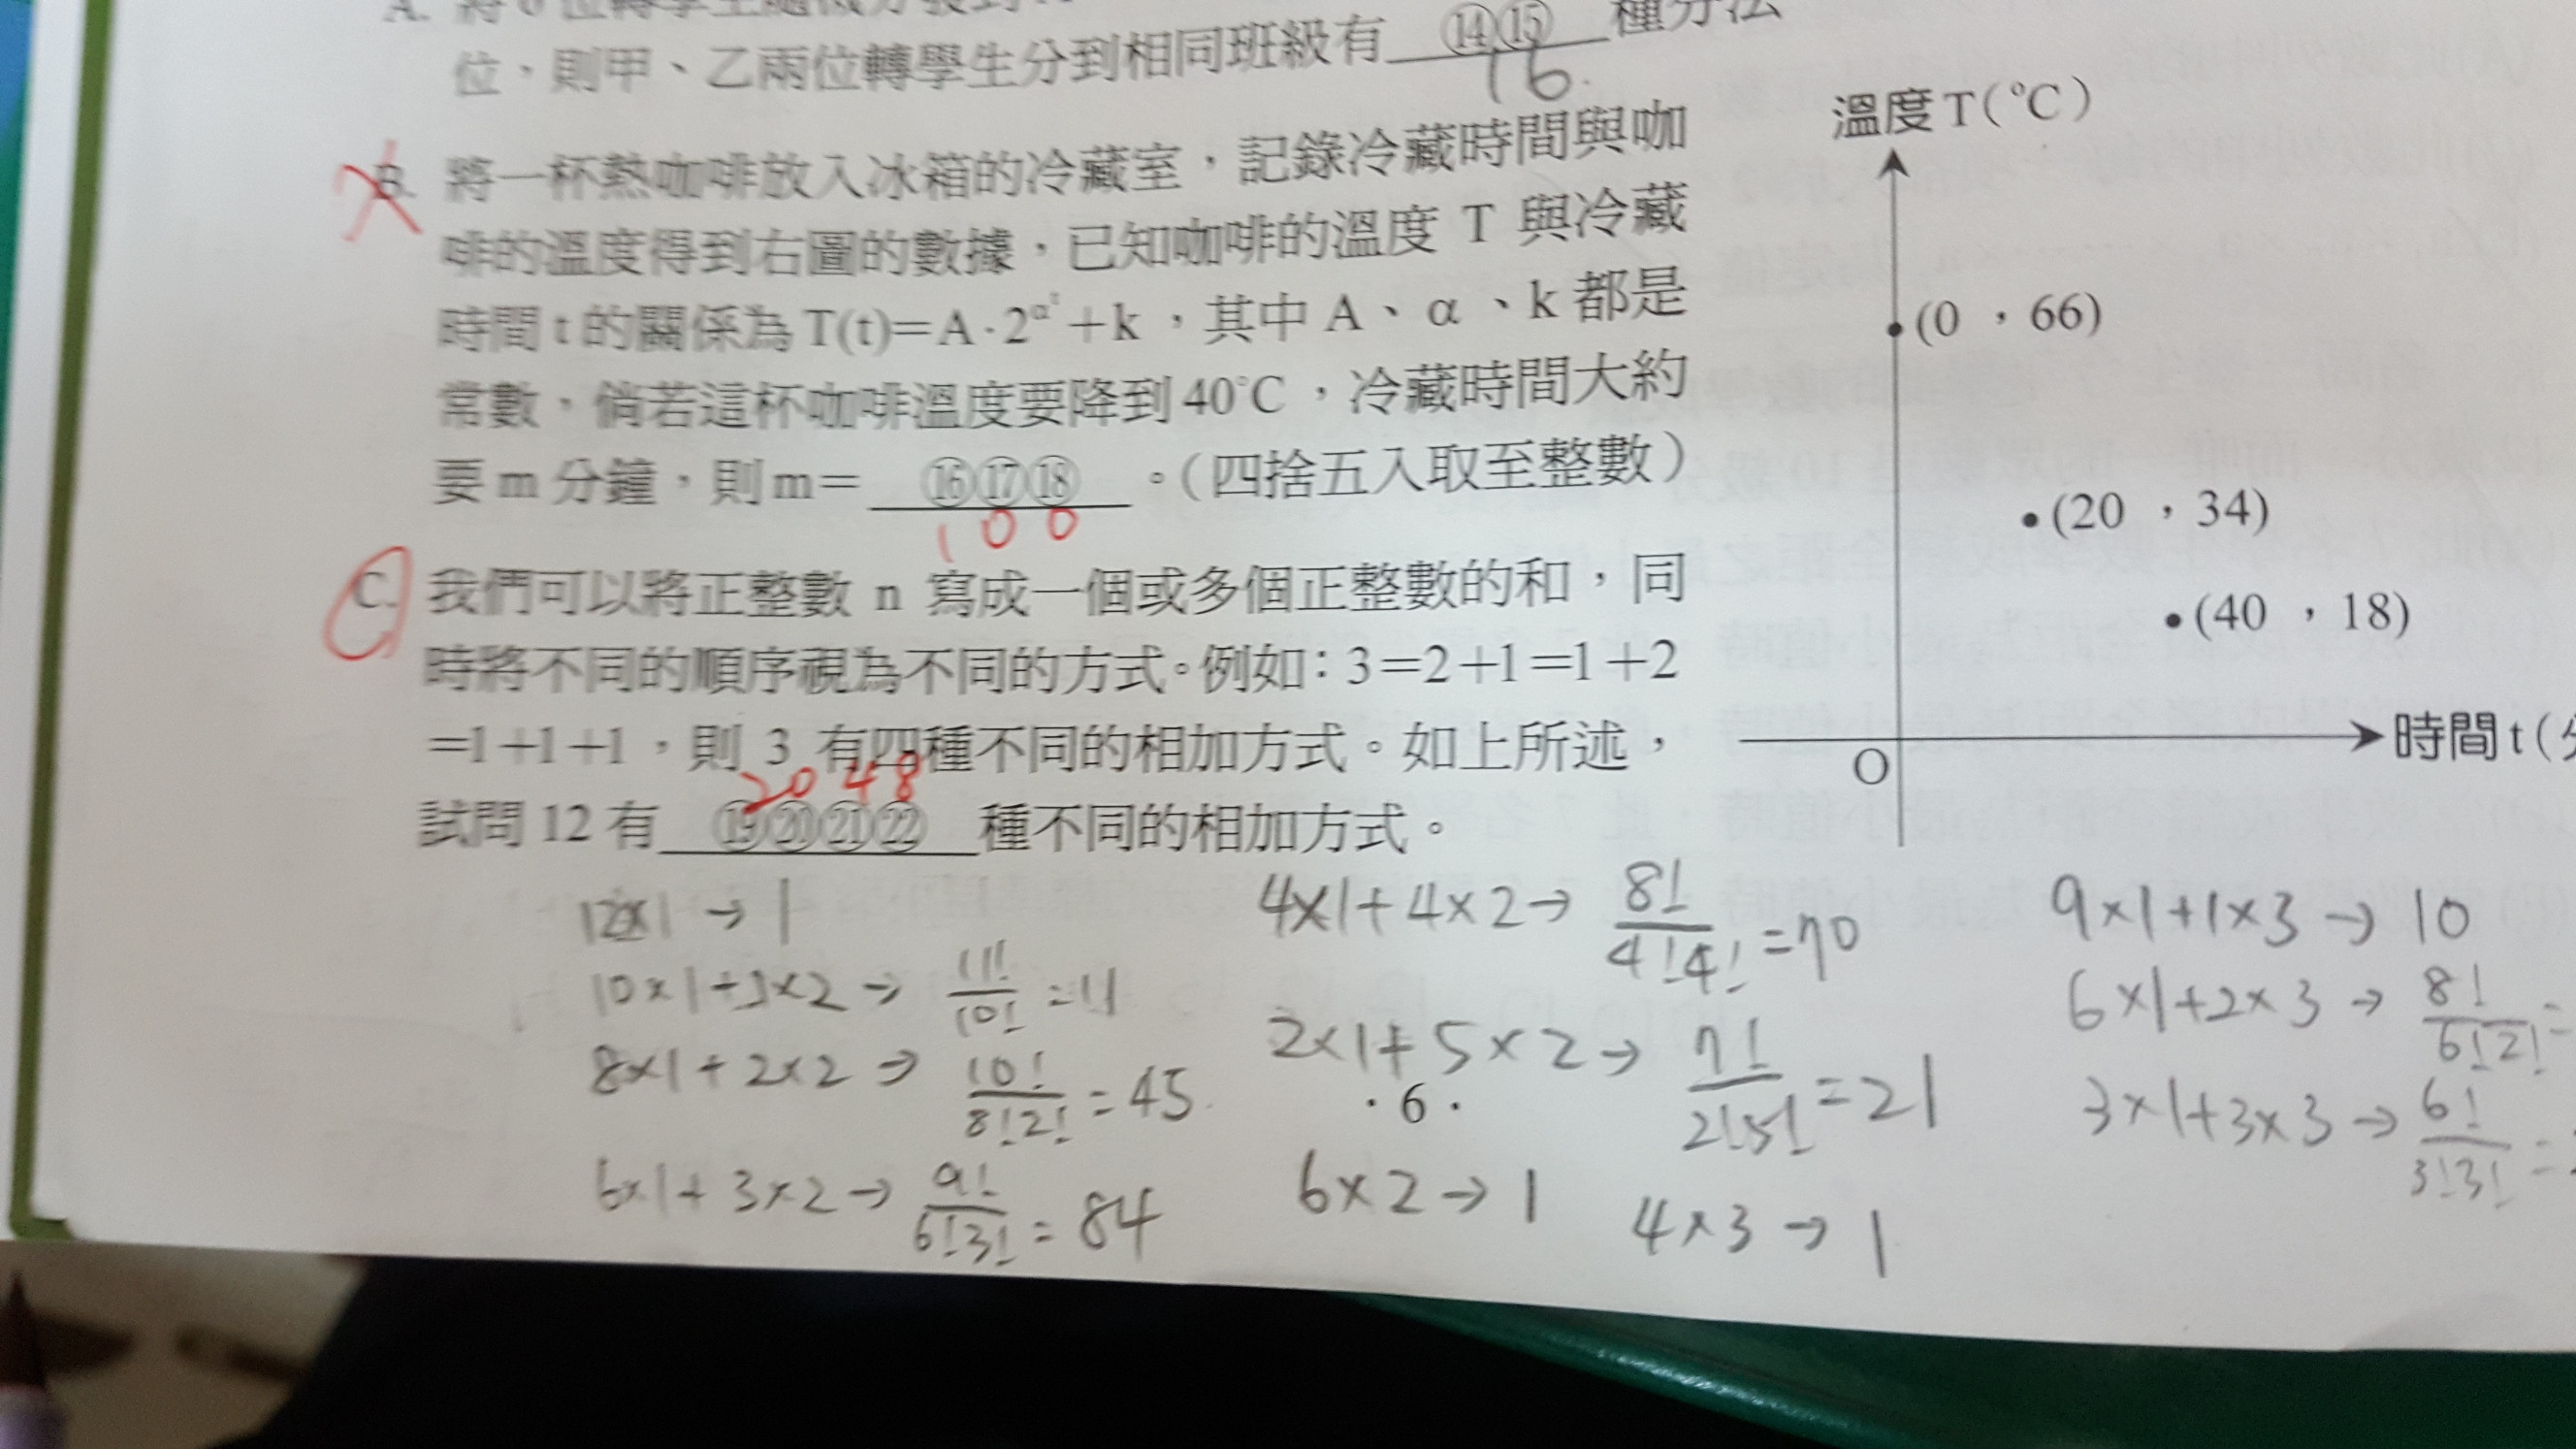 A. 將6位轉學生隨機分發到
位，則甲、乙兩位轉學生分到相同班級有 ⑭⑮ 種分法
16.
B. 將一杯熱咖啡放入冰箱的冷藏室，記錄冷藏時間與咖
啡的溫度得到右圖的數據，已知咖啡的溫度 T 與冷藏
時間 t 的關係為 T(t)=A·2^α^t+k，其中 A、α、k 都是
常數，倘若這杯咖啡溫度要降到 40°C，冷藏時間大約
要 m 分鐘，則 m= ⑯⑰⑱ 。(四捨五入取至整數)
1 0 0
C. 我們可以將正整數 n 寫成一個或多個正整數的和，同
時將不同的順序視為不同的方式。例如：3=2+1=1+2
=1+1+1，則 3 有四種不同的相加方式。如上所述，
2048
試問 12 有 ⑲⑳㉑㉒ 種不同的相加方式。
溫度 T(°C)
(0，66)
(20，34)
(40，18)
O
時間 t(
12×1→1
10×1+1×2→11!/10!=11
8×1+2×2→10!/8!2!=45
6×1+3×2→9!/6!3!=84
4×1+4×2→8!/4!4!=70
2×1+5×2→7!/2!5!=21
·6·
6×2→1
4×3→1
9×1+1×3→10
6×1+2×3→8!/6!2!=
3×1+3×3→6!/3!3!=